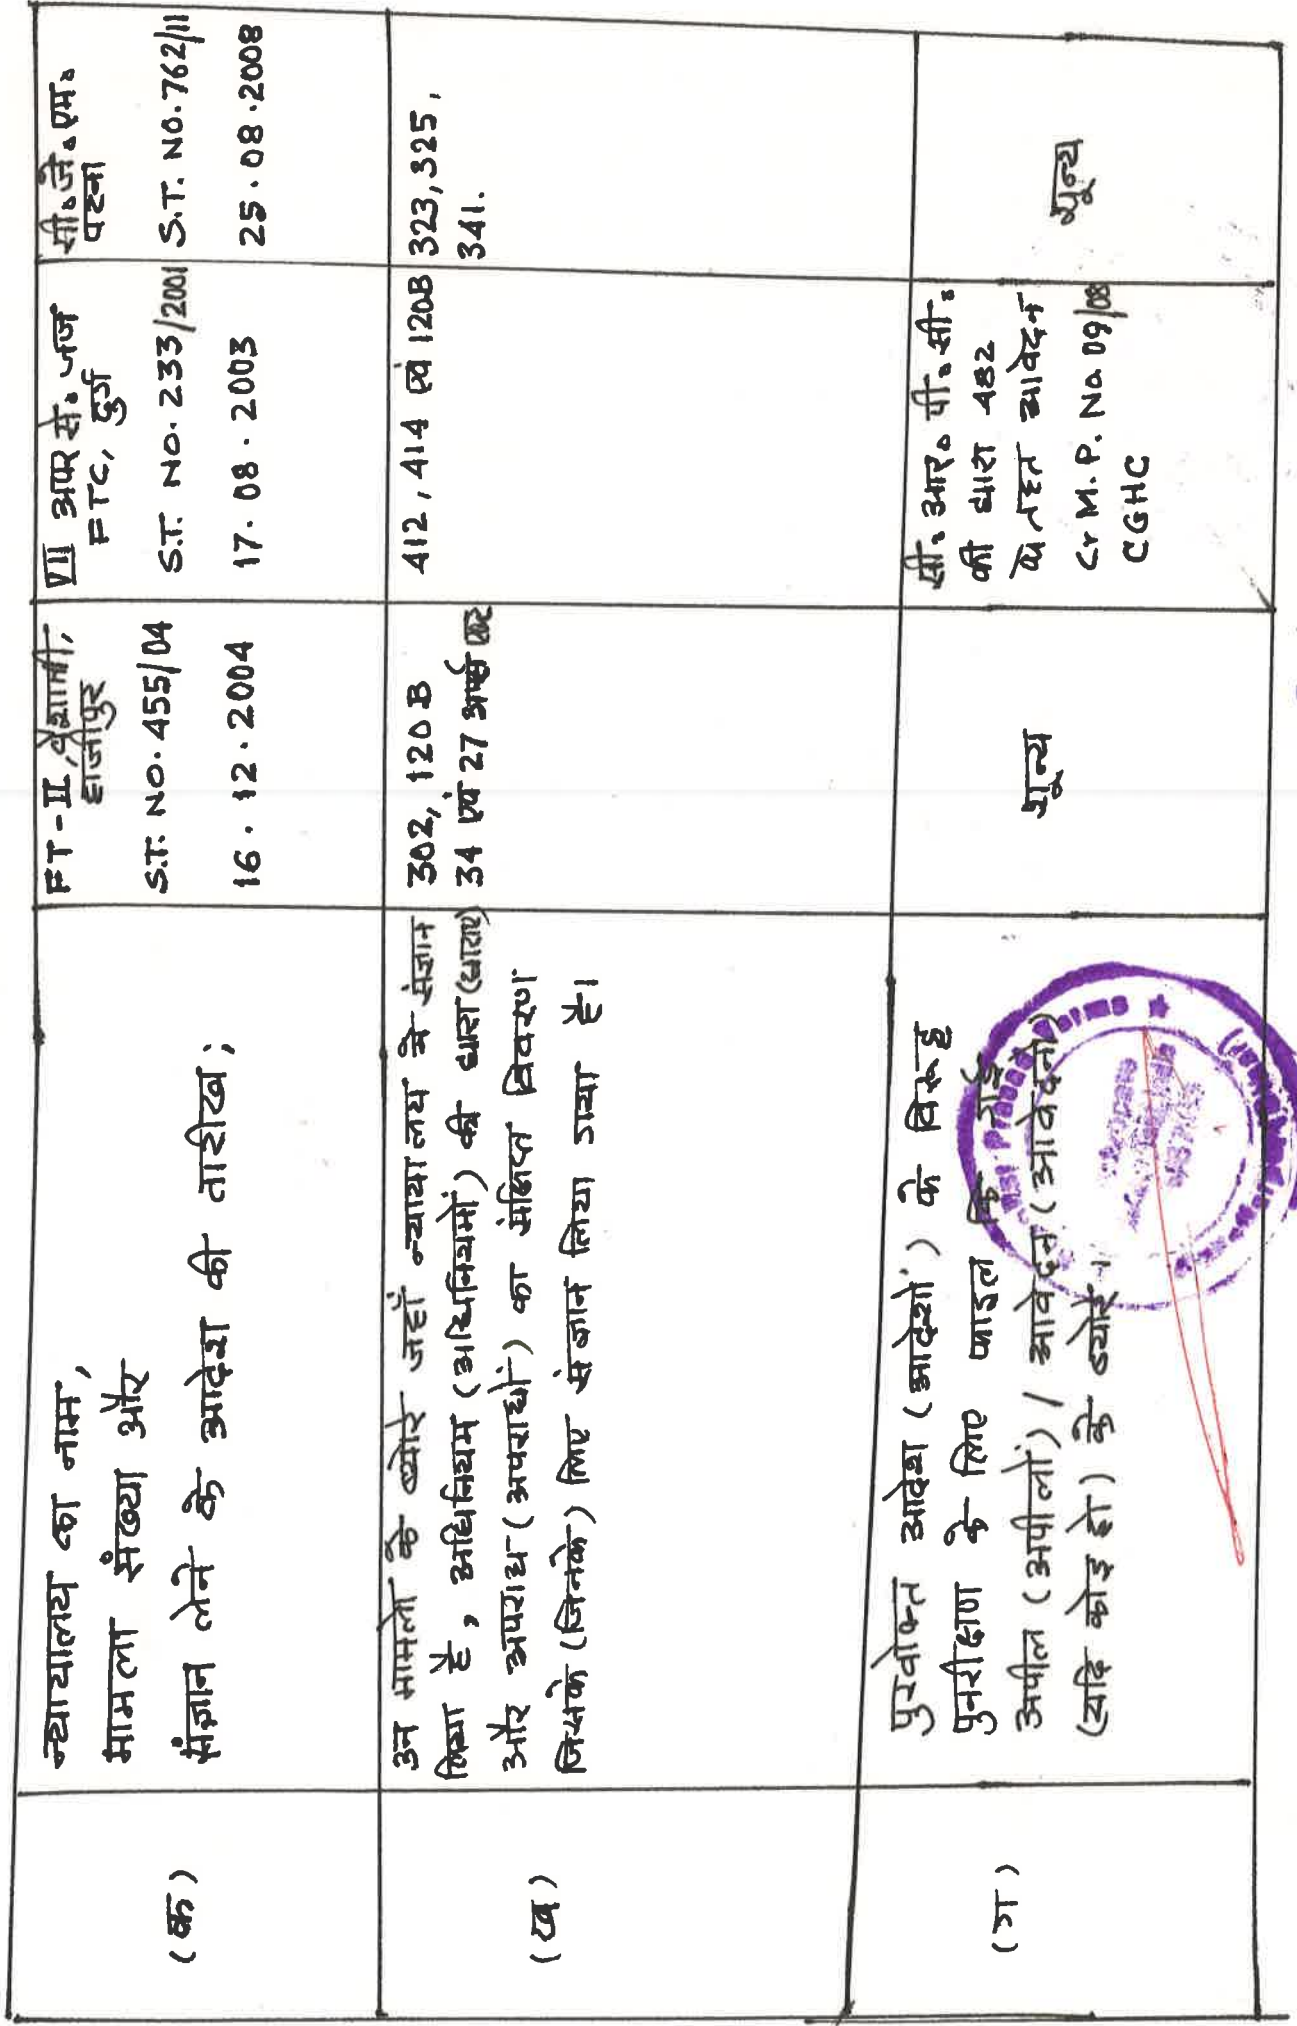 (क)
न्यायालय का नाम,
मामला संख्या और
संज्ञान लेने के आदेश की तारीख;
FT-II, वैशाली,
हाजीपुर
S.T. NO. 455/04
16.12.2004
VII अपर से. जज
FTC, दुर्ग
S.T. NO. 233/2001
17.08.2003
सी०जे०एम०
पटना
S.T. NO. 762/11
25.08.2008
(ख)
उन मामलों के ब्योरे जहाँ न्यायालय ने संज्ञान
लिया है, अधिनियम (अधिनियमों) की धारा (धाराएं)
और अपराध (अपराधों) का संक्षिप्त विवरण
जिसके (जिनके) लिए संज्ञान लिया गया है।
302, 120B
34 एवं 27 आर्म्स एक्ट
412, 414 एवं 120B
323, 325,
341.
(ग)
पुरवोक्त आदेश (आदेशों) के विरूद्ध
पुनरीक्षण के लिए फाइल कि गई
अपील (अपीलों) / आवेदन (आवेदनों)
(यदि कोइ हो) के ब्योरे।
शून्य
सी. आर० पी. सी.
की धारा 482
के तहत आवेदन
Cr M.P. No 09/08
CGHC
शून्य